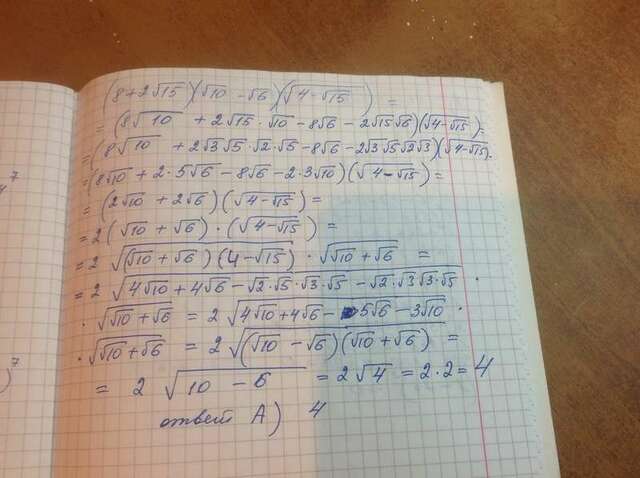 (8+2√15)(√10 - √6)(√4-√15) =
= (8√10 + 2√15·√10 - 8√6 - 2√15√6)(√4-√15) =
= (8√10 + 2√3√5·√2·√5 - 8√6 - 2√3√5√2√3)(√4-√15) =
= (8√10 + 2·5√6 - 8√6 - 2·3√10)(√4-√15) =
= (2√10 + 2√6)(√4-√15) =
= 2(√10 + √6)·(√4-√15) =
= 2√(√10 + √6)(4-√15) · √√10 + √6 =
= 2√4√10 + 4√6 - √2·√5·√3·√5 - √2·√3√3·√5 ·
· √√10 + √6 = 2√4√10 + 4√6 - 5√6 - 3√10 ·
· √√10 + √6 = 2√(√10 - √6)(√10 + √6) =
= 2√10 - 6 = 2√4 = 2·2 = 4
ответ А) 4
7
)7